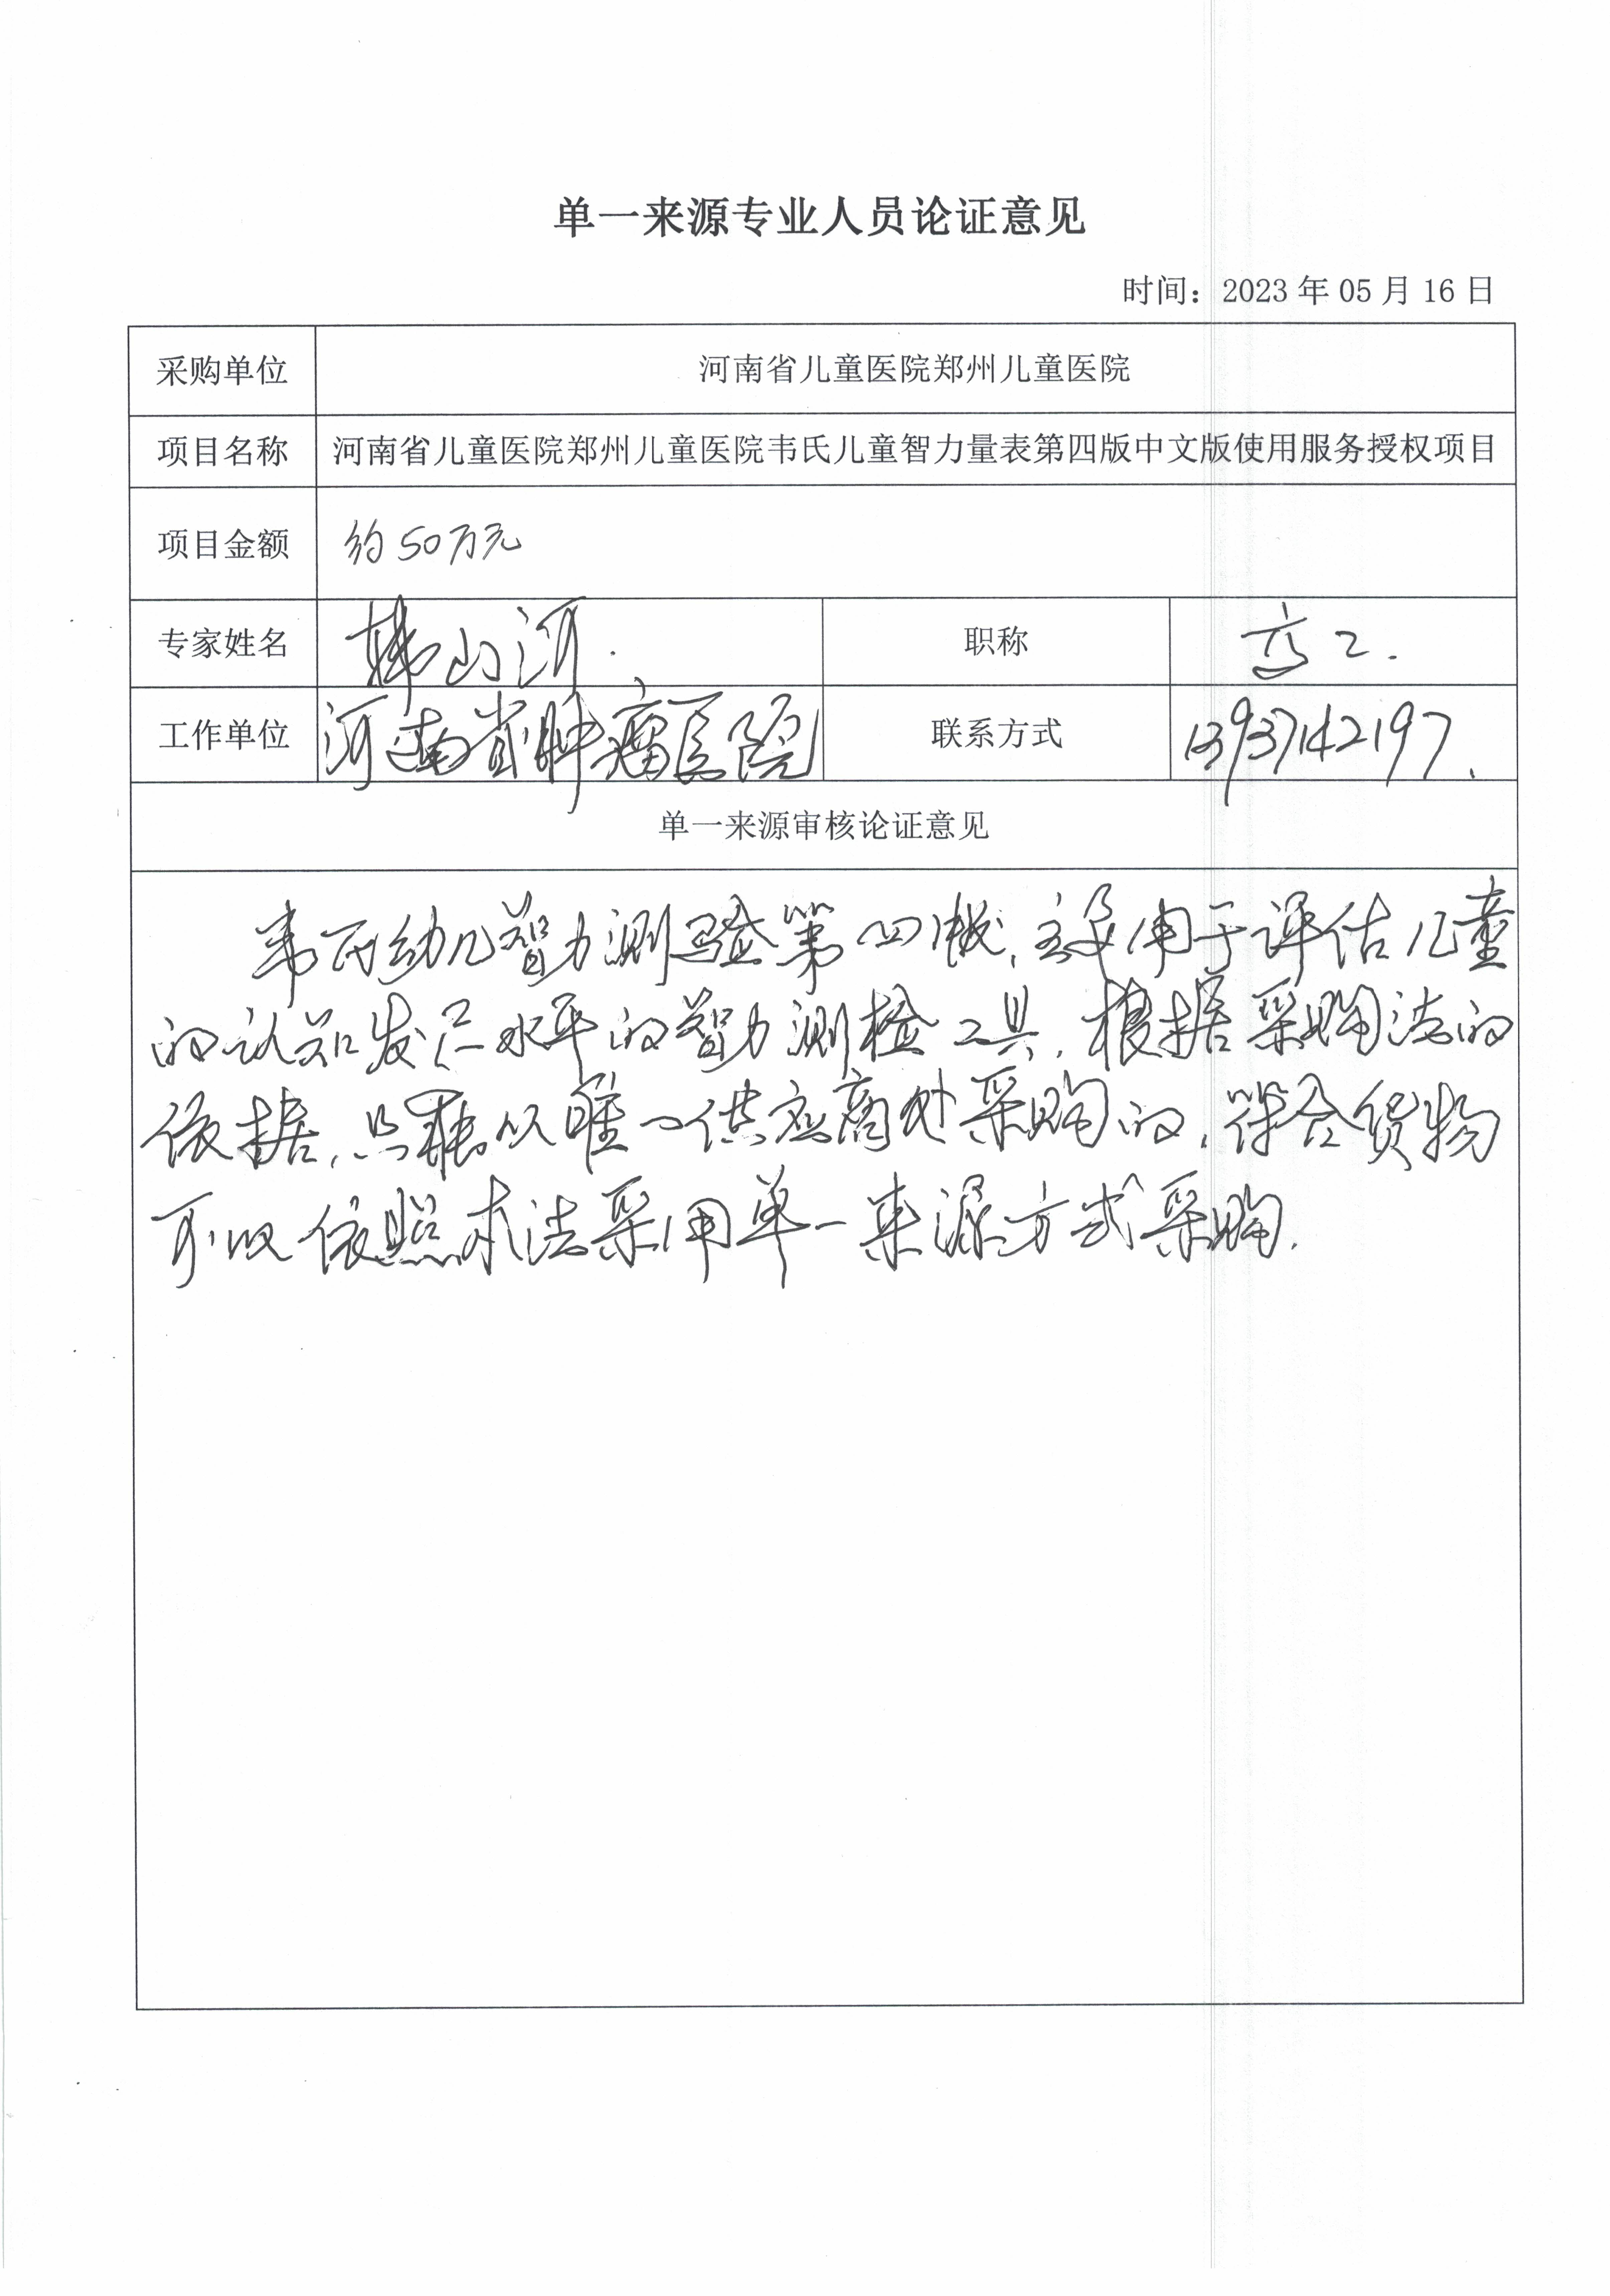 单一来源专业人员论证意见
时间：2023 年 05 月 16 日
采购单位 河南省儿童医院郑州儿童医院
项目名称 河南省儿童医院郑州儿童医院韦氏儿童智力量表第四版中文版使用服务授权项目
项目金额 约50万元
专家姓名 韩山河. 职称 高工.
工作单位 河南省肿瘤医院 联系方式 13937142197.
单一来源审核论证意见
韦氏幼儿智力测验第四版,主要用于评估儿童
的认知发展水平的智力测检工具.根据采购法的
依据,只能从唯一供应商处采购的,符合货物
可以依照本法采用单一来源方式采购.